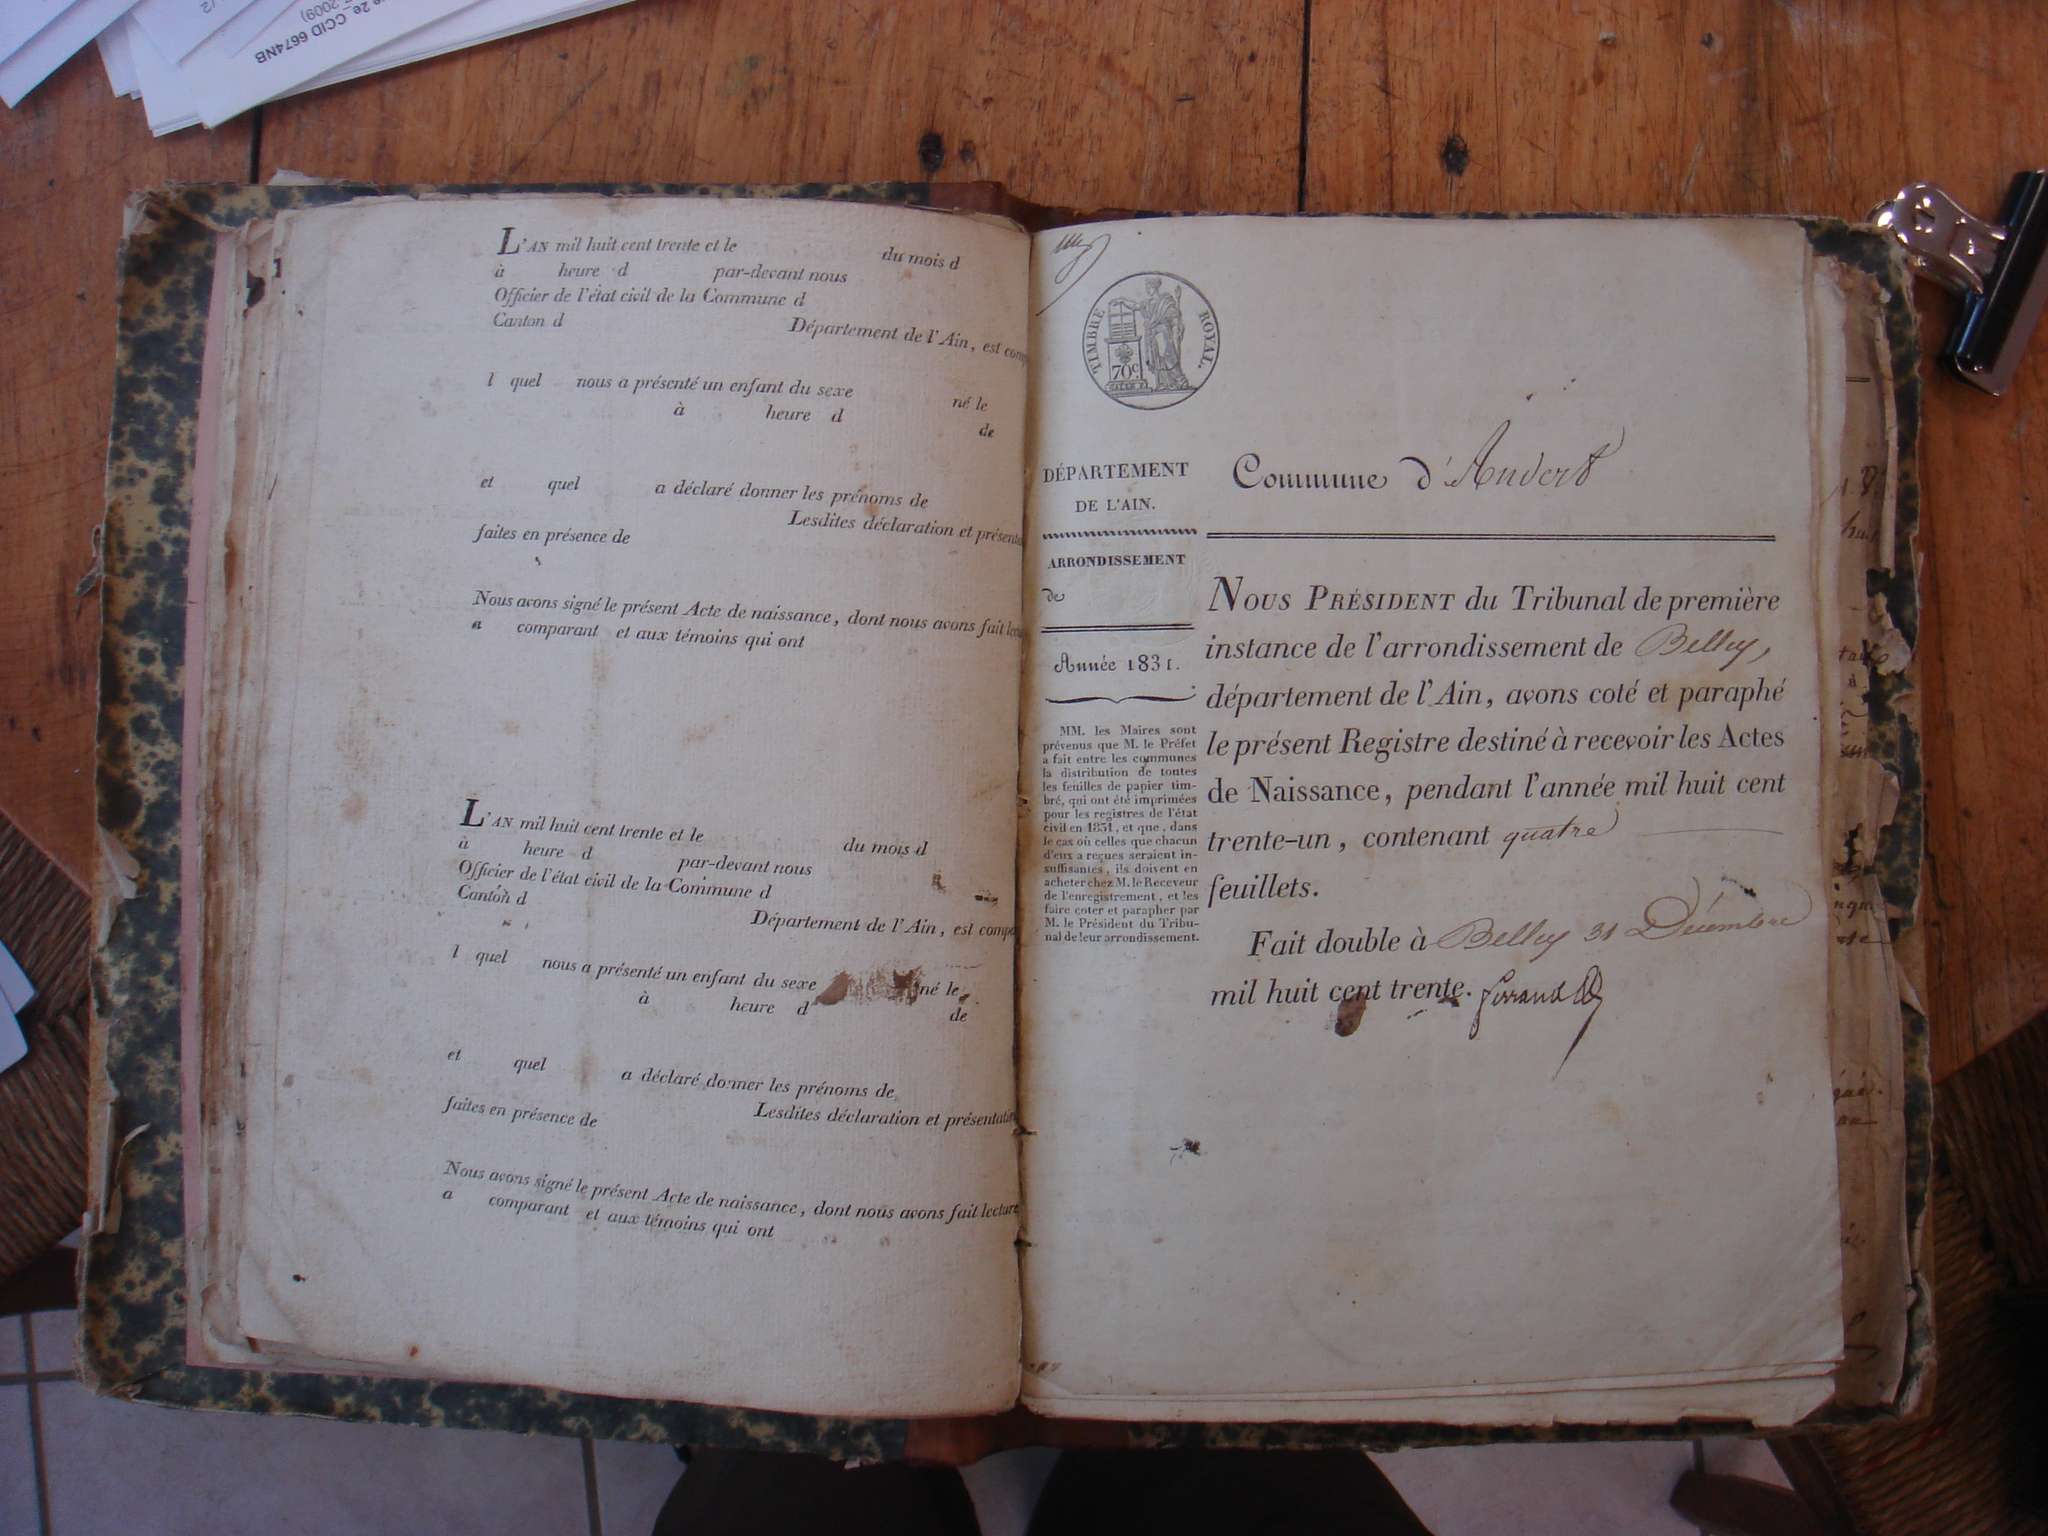 CCID 6674NB
2009)
L'AN mil huit cent trente et le du mois d
à heure d par-devant nous
Officier de l'état civil de la Commune d
Canton d Département de l'Ain, est comp
l quel nous a présenté un enfant du sexe né le
à heure d de
et quel a déclaré donner les prénoms de
Lesdites déclaration et présenta
faites en présence de
Nous avons signé le présent Acte de naissance, dont nous avons fait lectu
a comparant et aux témoins qui ont
L'AN mil huit cent trente et le du mois d
à heure d par-devant nous
Officier de l'état civil de la Commune d
Canton d Département de l'Ain, est compa
l quel nous a présenté un enfant du sexe né le
à heure d de
et quel a déclaré donner les prénoms de
Lesdites déclaration et présentation
faites en présence de
Nous avons signé le présent Acte de naissance, dont nous avons fait lecture
a comparant et aux témoins qui ont
TIMBRE ROYAL.
70c.
DÉPARTEMENT
DE L'AIN.
ARRONDISSEMENT
de
Année 1831.
MM. les Maires sont
prévenus que M. le Préfet
a fait entre les communes
la distribution de toutes
les feuilles de papier tim-
bré, qui ont été imprimées
pour les registres de l'état
civil en 1831, et que, dans
le cas où celles que chacun
d'eux a reçues seraient in-
suffisantes, ils doivent en
acheter chez M. le Receveur
de l'enregistrement, et les
faire coter et parapher par
M. le Président du Tribu-
nal de leur arrondissement.
Commune d'Andert
NOUS PRÉSIDENT du Tribunal de première
instance de l'arrondissement de Belley,
département de l'Ain, avons coté et paraphé
le présent Registre destiné à recevoir les Actes
de Naissance, pendant l'année mil huit cent
trente-un, contenant quatre
feuillets.
Fait double à Belley 31 Décembre
mil huit cent trente.